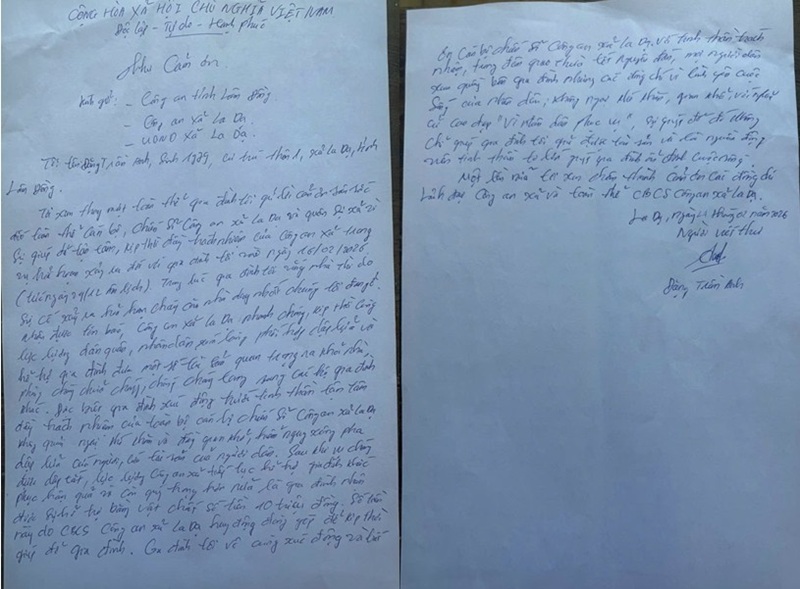 CỘNG HÒA XÃ HỘI CHỦ NGHĨA VIỆT NAM
Độc lập - Tự do - Hạnh phúc
Thư Cảm ơn
Kính gửi: - Công an tỉnh Lâm Đồng.
- Công an xã La Dạ.
- UBND xã La Dạ.
Tôi tên Đặng Trần Anh, Sinh 1979, cư trú thôn 1, xã La Dạ, tỉnh
Lâm Đồng.
Tôi xin thay mặt toàn thể gia đình tôi gửi lời cảm ơn sâu sắc
đến toàn thể cán bộ, chiến sĩ Công an xã La Dạ và quân sự xã vì
sự giúp đỡ tận tâm, kịp thời đầy trách nhiệm của Công an xã trong
vụ hỏa hoạn xảy ra đối với gia đình tôi vào ngày 16/02/2026
(tức ngày 29/12 âm lịch). Trong lúc gia đình tôi vắng nhà thì do
sự cố xảy ra hỏa hoạn cháy căn nhà duy nhất chúng tôi đang ở.
Nhận được tin báo, Công an xã La Dạ nhanh chóng, kịp thời cùng
lực lượng dân quân, nhân dân xung quanh, phối hợp dập lửa và
hỗ trợ gia đình đưa một số tài sản quan trọng ra khỏi nhà
phòng cháy chữa cháy, chống cháy lan sang các hộ gia đình
khác. Đặc biệt gia đình xúc động trước tinh thần tận tâm
đầy trách nhiệm của toàn bộ cán bộ chiến sĩ Công an xã La Dạ
không quản ngại khó khăn và đầy gian khổ, hiểm nguy xông pha
dập lửa cứu người, cứu tài sản của người dân. Sau khi vụ cháy
được dập tắt, lực lượng Công an xã tiếp tục hỗ trợ gia đình khắc
phục hậu quả và còn quý trọng hơn nữa là gia đình nhận
được sự hỗ trợ bằng vật chất số tiền 10 triệu đồng. Số tiền
này do CBCS Công an xã La Dạ chung đóng góp để kịp thời
giúp đỡ gia đình. Gia đình tôi vô cùng xúc động và biết
ơn Cán bộ chiến sĩ Công an xã La Dạ. Với tinh thần trách
nhiệm, trong đêm giao thừa tết Nguyên đán, mọi người đều
sum quầy bên gia đình nhưng các đồng chí vì bình yên cuộc
sống của nhân dân, không ngại khó khăn, gian khổ. Với nghĩa
cử cao đẹp "Vì nhân dân phục vụ", sự giúp đỡ đó không
chỉ giúp gia đình tôi giữ được tài sản và là nguồn động
viên tinh thần to lớn giúp gia đình ổn định cuộc sống.
Một lần nữa tôi xin chân thành cảm ơn các đồng chí
lãnh đạo Công an xã và toàn thể CBCS Công an xã La Dạ.
La Dạ, ngày 21 tháng 02 năm 2026
Người viết thư
Đặng Trần Anh